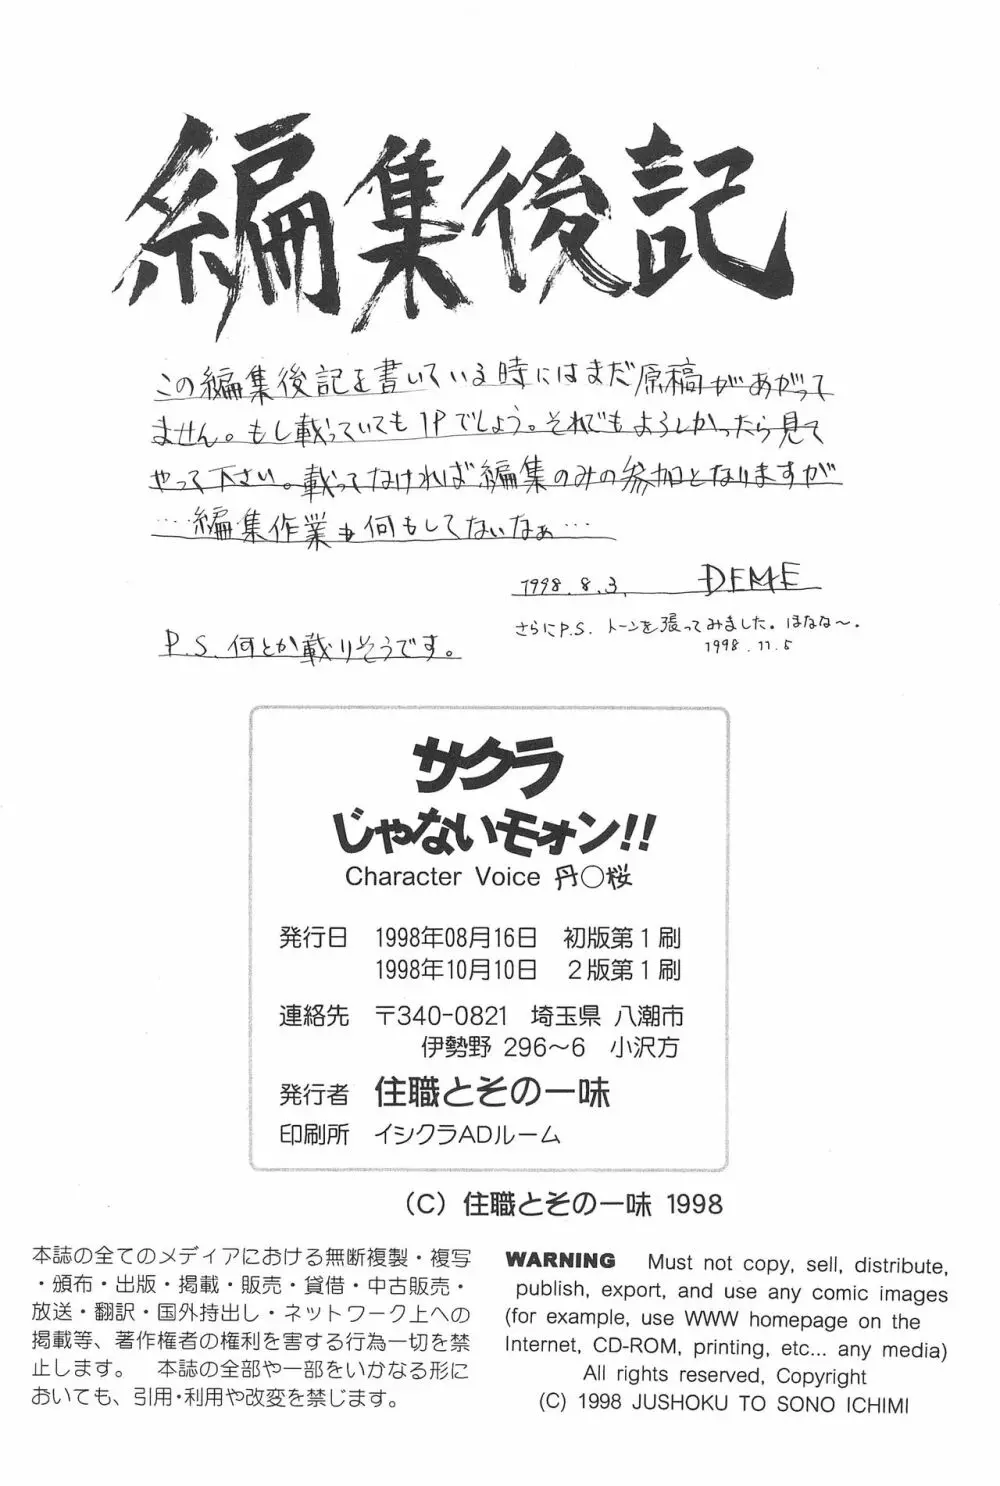 編集後記
この編集後記を書いている時にはまだ原稿があがって
ません。もし載っていても1Pでしょう。それでもよろしかったら見て
やって下さい。載ってなければ編集のみの参加となりますが
…編集作業も何もしてないなぁ…
1998.8.3. DEME
さらにP.S. トーンを張ってみました。ほなな〜。
1998.11.5
P.S. 何とか載りそうです。
サクラ
じゃないモォン!!
Character Voice 丹○桜
発行日 1998年08月16日 初版第1刷
1998年10月10日 2版第1刷
連絡先 〒340-0821 埼玉県 八潮市
伊勢野 296〜6 小沢方
発行者 住職とその一味
印刷所 イシクラADルーム
(C) 住職とその一味 1998
本誌の全てのメディアにおける無断複製・複写
・頒布・出版・掲載・販売・貸借・中古販売・
放送・翻訳・国外持出し・ネットワーク上への
掲載等、著作権者の権利を害する行為一切を禁
止します。 本誌の全部や一部をいかなる形に
おいても、引用・利用や改変を禁じます。
WARNING Must not copy, sell, distribute,
publish, export, and use any comic images
(for example, use WWW homepage on the
Internet, CD-ROM, printing, etc... any media)
All rights reserved, Copyright
(C) 1998 JUSHOKU TO SONO ICHIMI